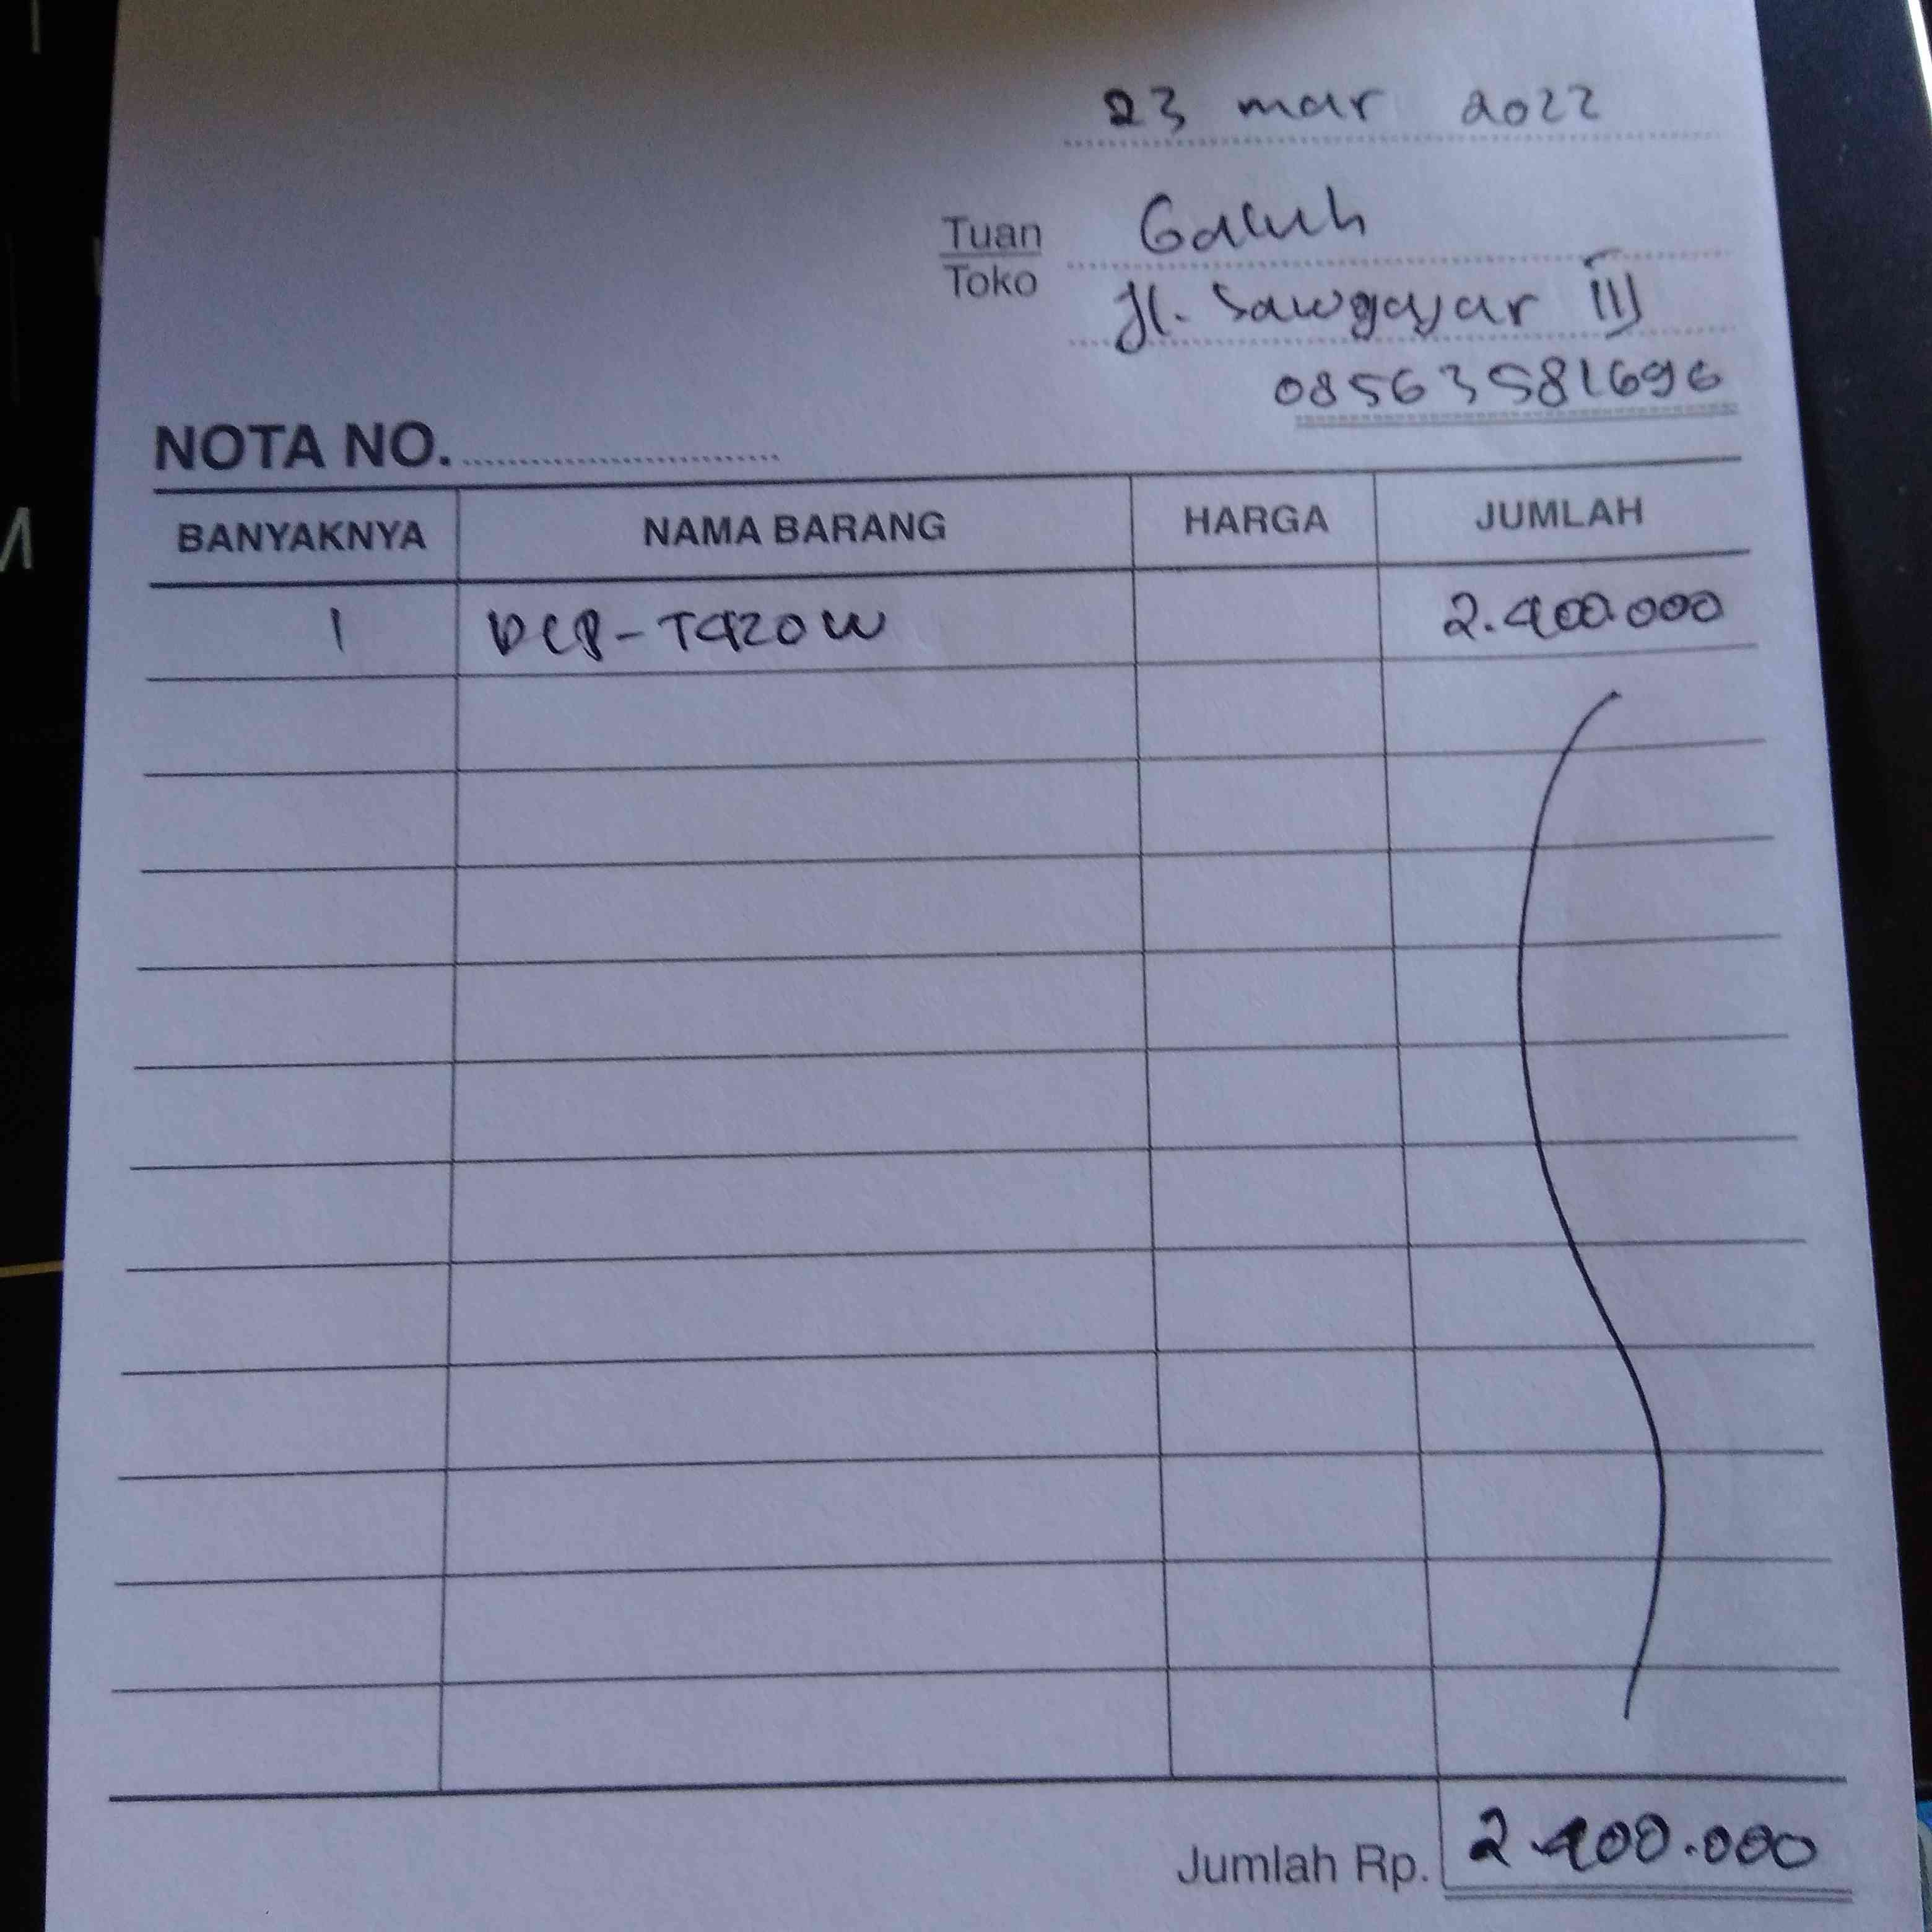 23 mar 2022
Tuan Galuh
Toko Jl. Sawgajar III
08563581696
NOTA NO.
BANYAKNYA NAMA BARANG HARGA JUMLAH
1 DCP-T420W 2.400.000
Jumlah Rp. 2.400.000